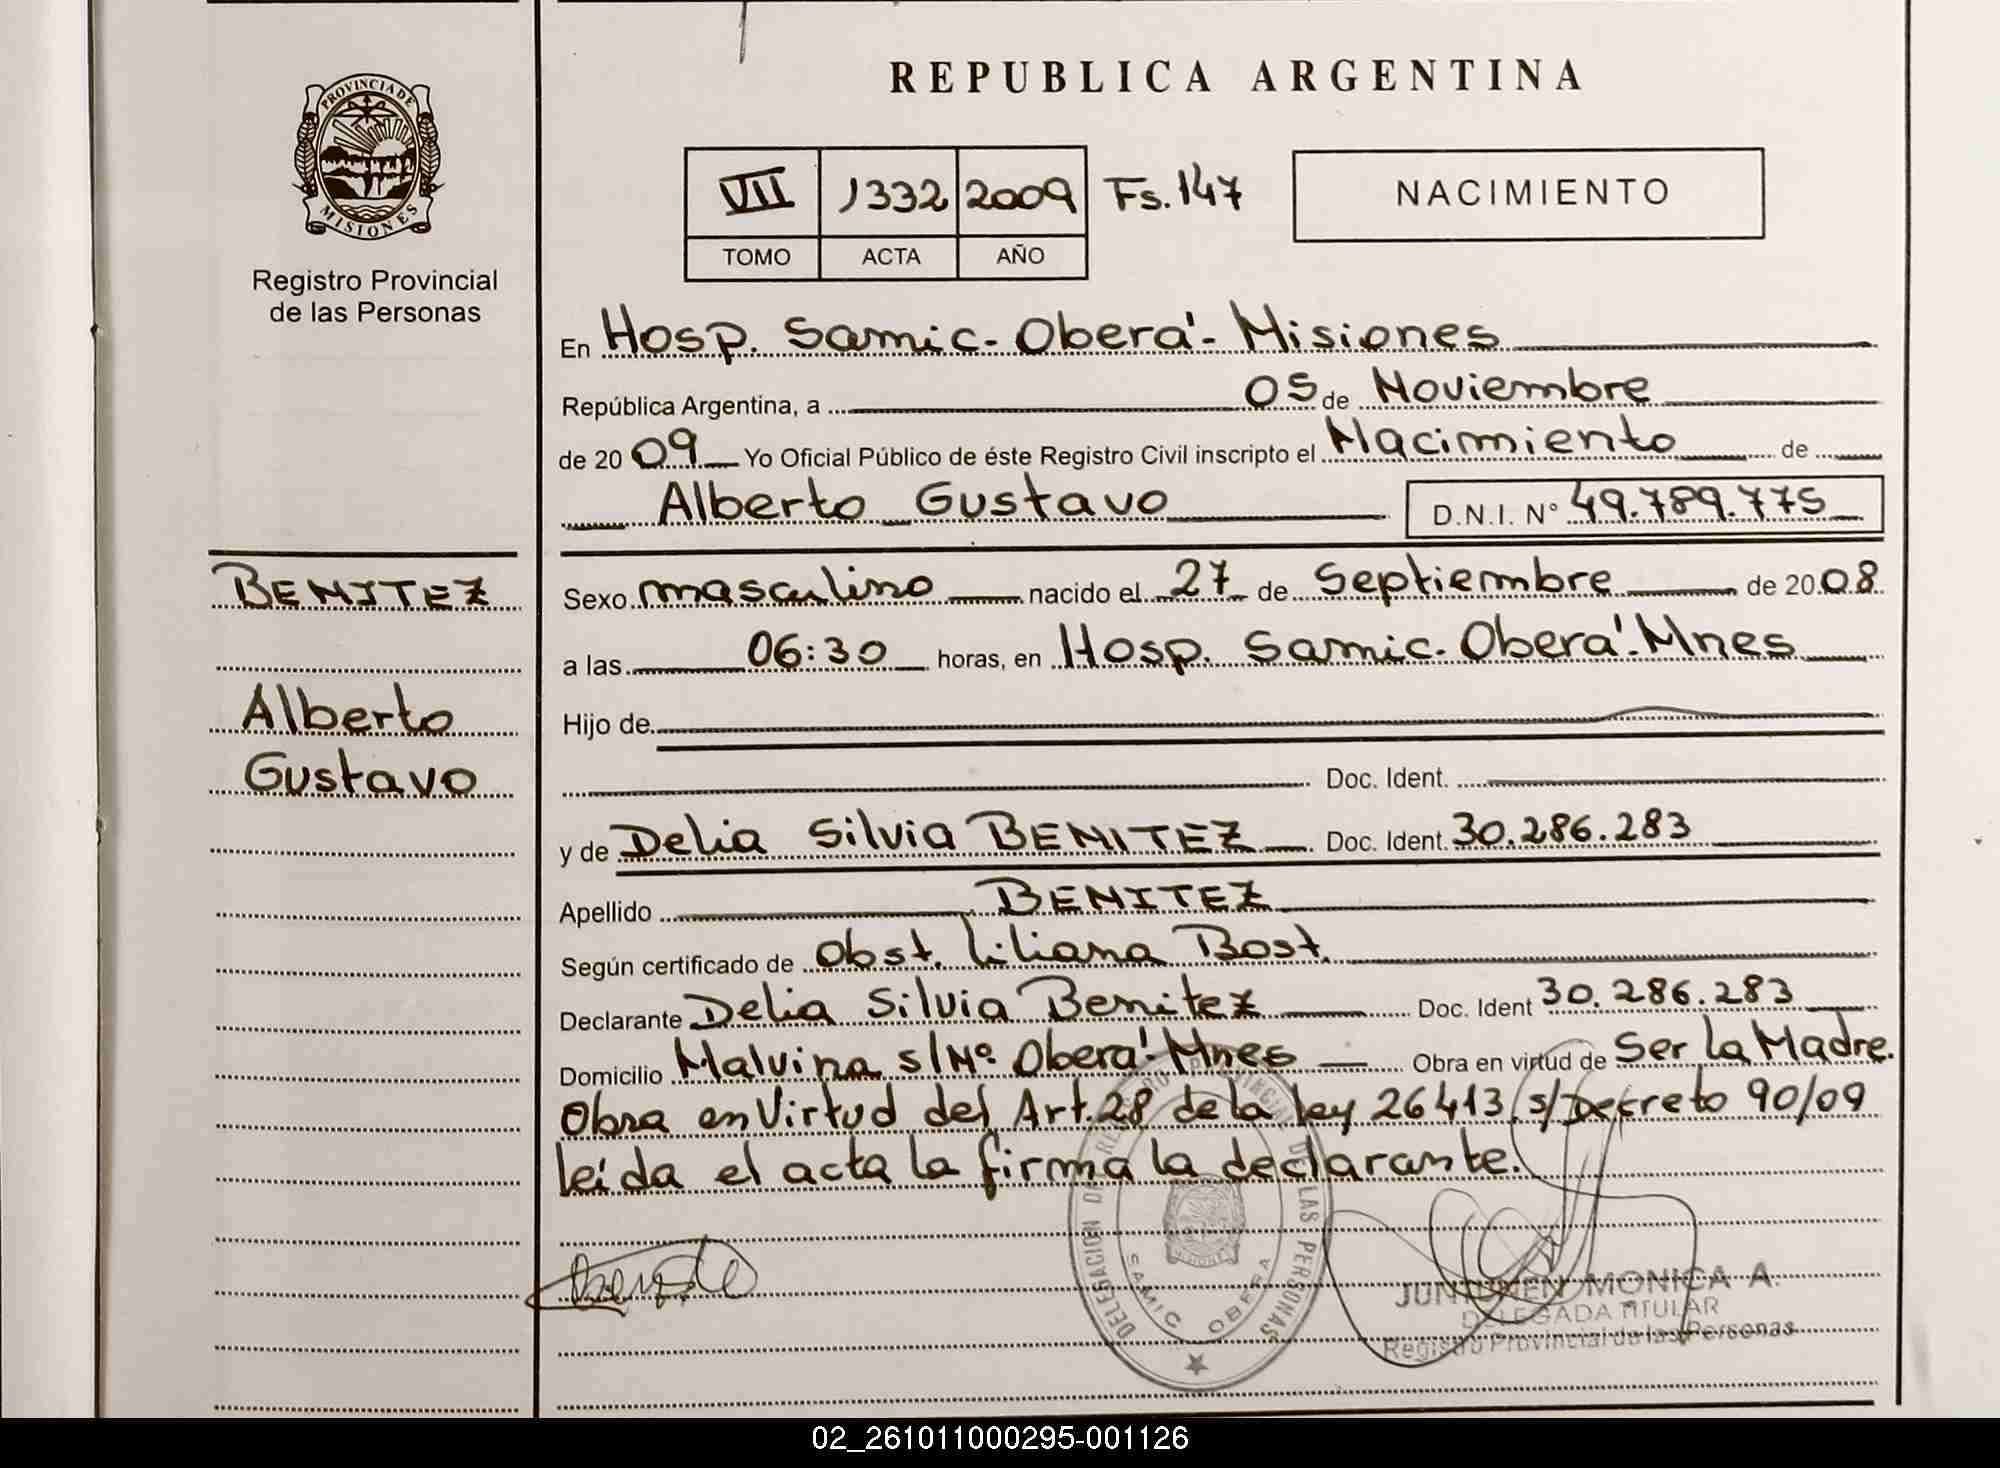 PROVINCIA DE
MISIONES
Registro Provincial
de las Personas
BENITEZ
Alberto
Gustavo
REPUBLICA ARGENTINA
VII 1332 2009 Fs. 147
TOMO ACTA AÑO
NACIMIENTO
En Hosp. Samic - Oberá - Misiones
República Argentina, a 05 de Noviembre
de 2009 Yo Oficial Público de éste Registro Civil inscripto el Nacimiento de
Alberto Gustavo D.N.I. N° 49.789.775
Sexo masculino nacido el 27 de Septiembre de 2008
a las 06:30 horas, en Hosp. Samic. Oberá. Mnes
Hijo de
Doc. Ident.
y de Delia Silvia BENITEZ Doc. Ident. 30.286.283
Apellido BENITEZ
Según certificado de Obst. Liliana Bost.
Declarante Delia Silvia Benitez Doc. Ident 30.286.283
Domicilio Malvina s/Nº Oberá - Mnes Obra en virtud de Ser la Madre.
Obra en Virtud del Art. 28 de la ley 26413, s/Decreto 90/09
leída el acta la firma la declarante.
DELEGACION DEL REGISTRO PROVINCIAL DE LAS PERSONAS
SAMIC OBERA
MONICA A.
DELEGADA TITULAR
Registro Provincial de las Personas
02_261011000295-001126